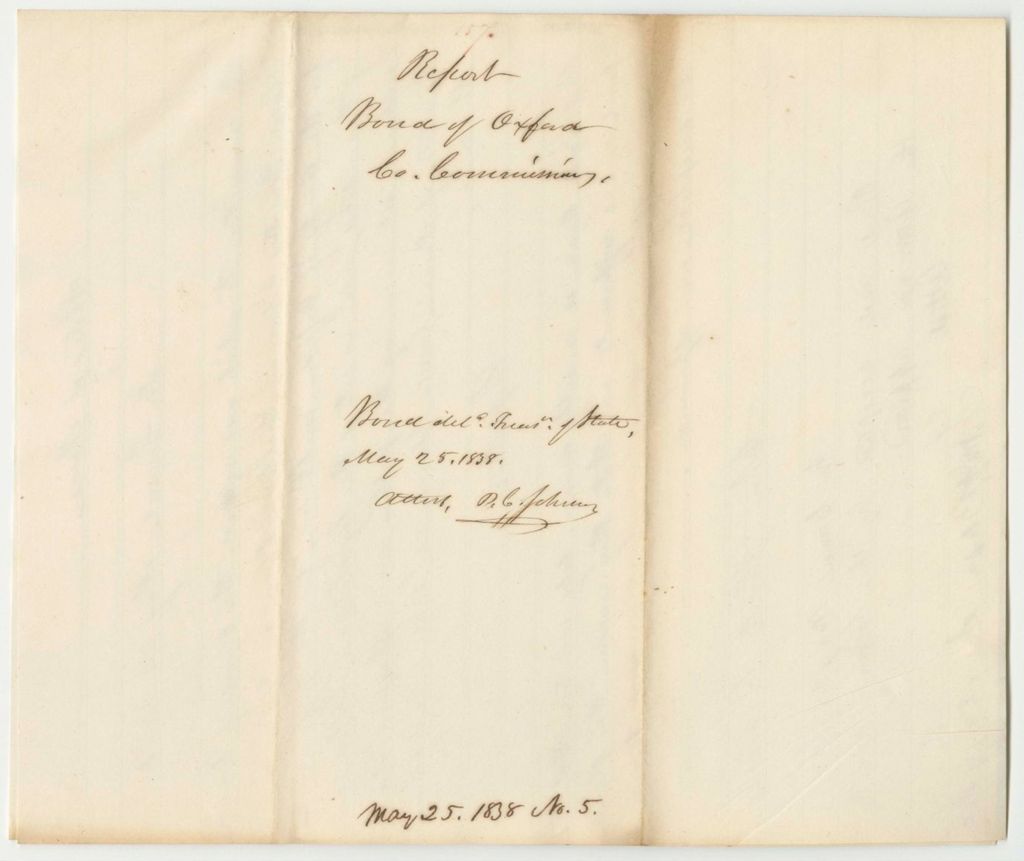 157.
Report
Bond of Oxford
Co. Commissioners.
Bond deld. Treasr. of State,
May 25. 1838.
Attest, P. C. Johnson
May 25. 1838 No. 5.